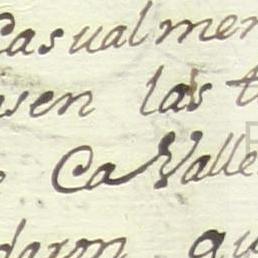 Casualmen
sen las t
Ca Valle
daron qu